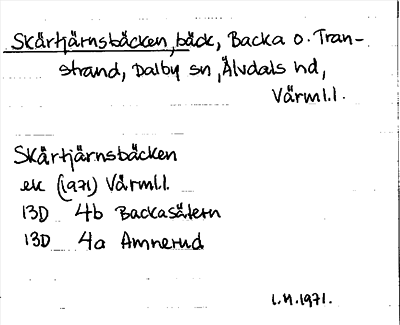 Skärtjärnsbäcken, bäck, Backa o. Tran-
strand, Dalby sn, Älvdals hd,
Värml.l.
Skärtjärnsbäcken
ek (1971) Värml.l.
13D 4b Backasätern
13D 4a Amnerud
1971.